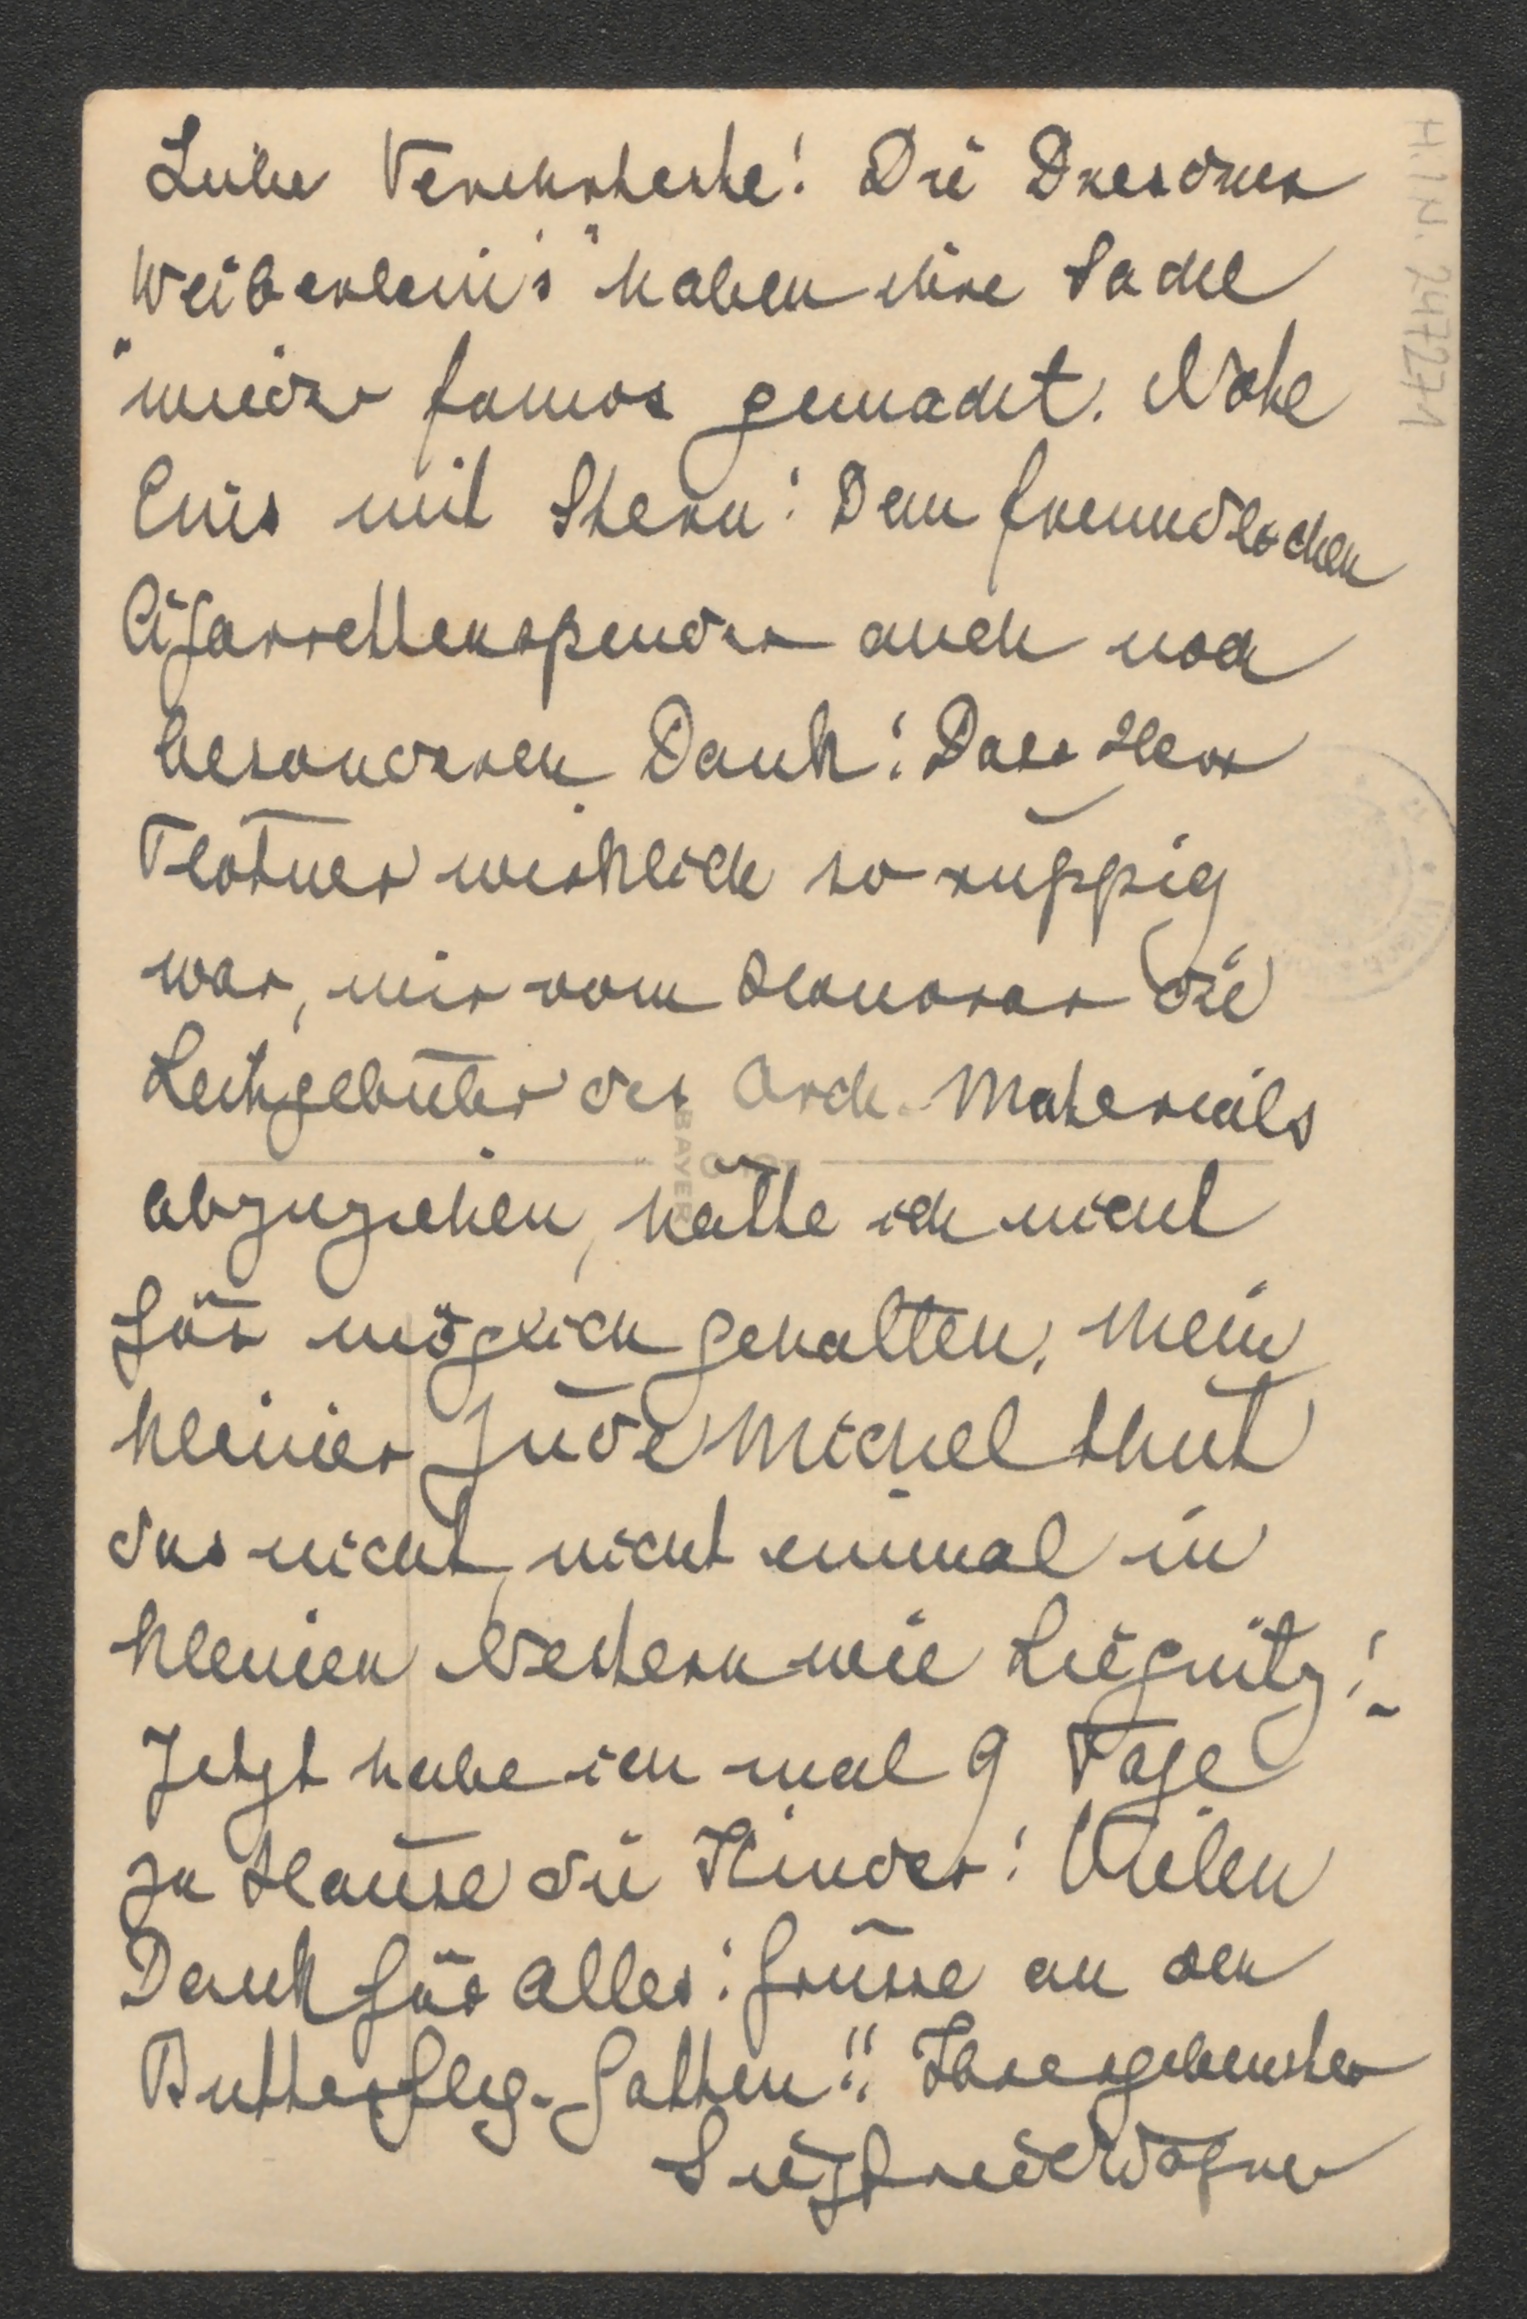 Liebe Verehrteste! Die Dresdner
Weiberlein's" haben ihre Sache
"wieder famos gemacht. Note
Eins mit Stern! Dem freundlichen
Cigarrettenspender auch noch
besonderen Dank! Dass Herr
wirklich so ruppig
war, mir vom Honorar die
Leihgebühr des Orch. Materials
abzuziehen, hätte ich nicht
für möglich gehalten. Mein
kleiner Jude Michel thut
das nicht, nicht einmal in
kleinen Nestern wie Liegnitz!
Jetzt habe ich mal 9 Tage
zu Hause die Kinder! Vielen
Dank für Alles! Grüsse an den
Butterfly-Gatten!! Ihr ergebenster
Siegfried Wagner
H.I.N. 247271
BAYER